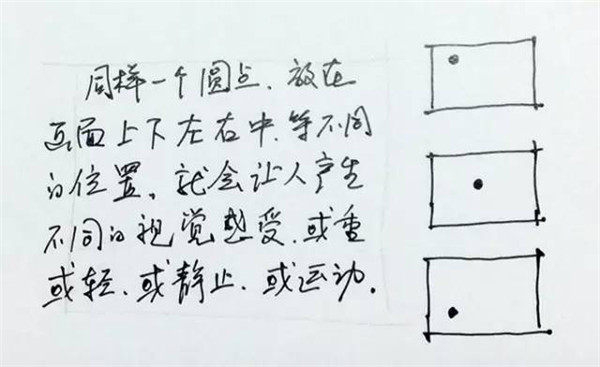 同样一个圆点、放在
画面上下左右中、等不同
的位置、就会让人产生
不同的视觉感受、或重
或轻、或静止、或运动。